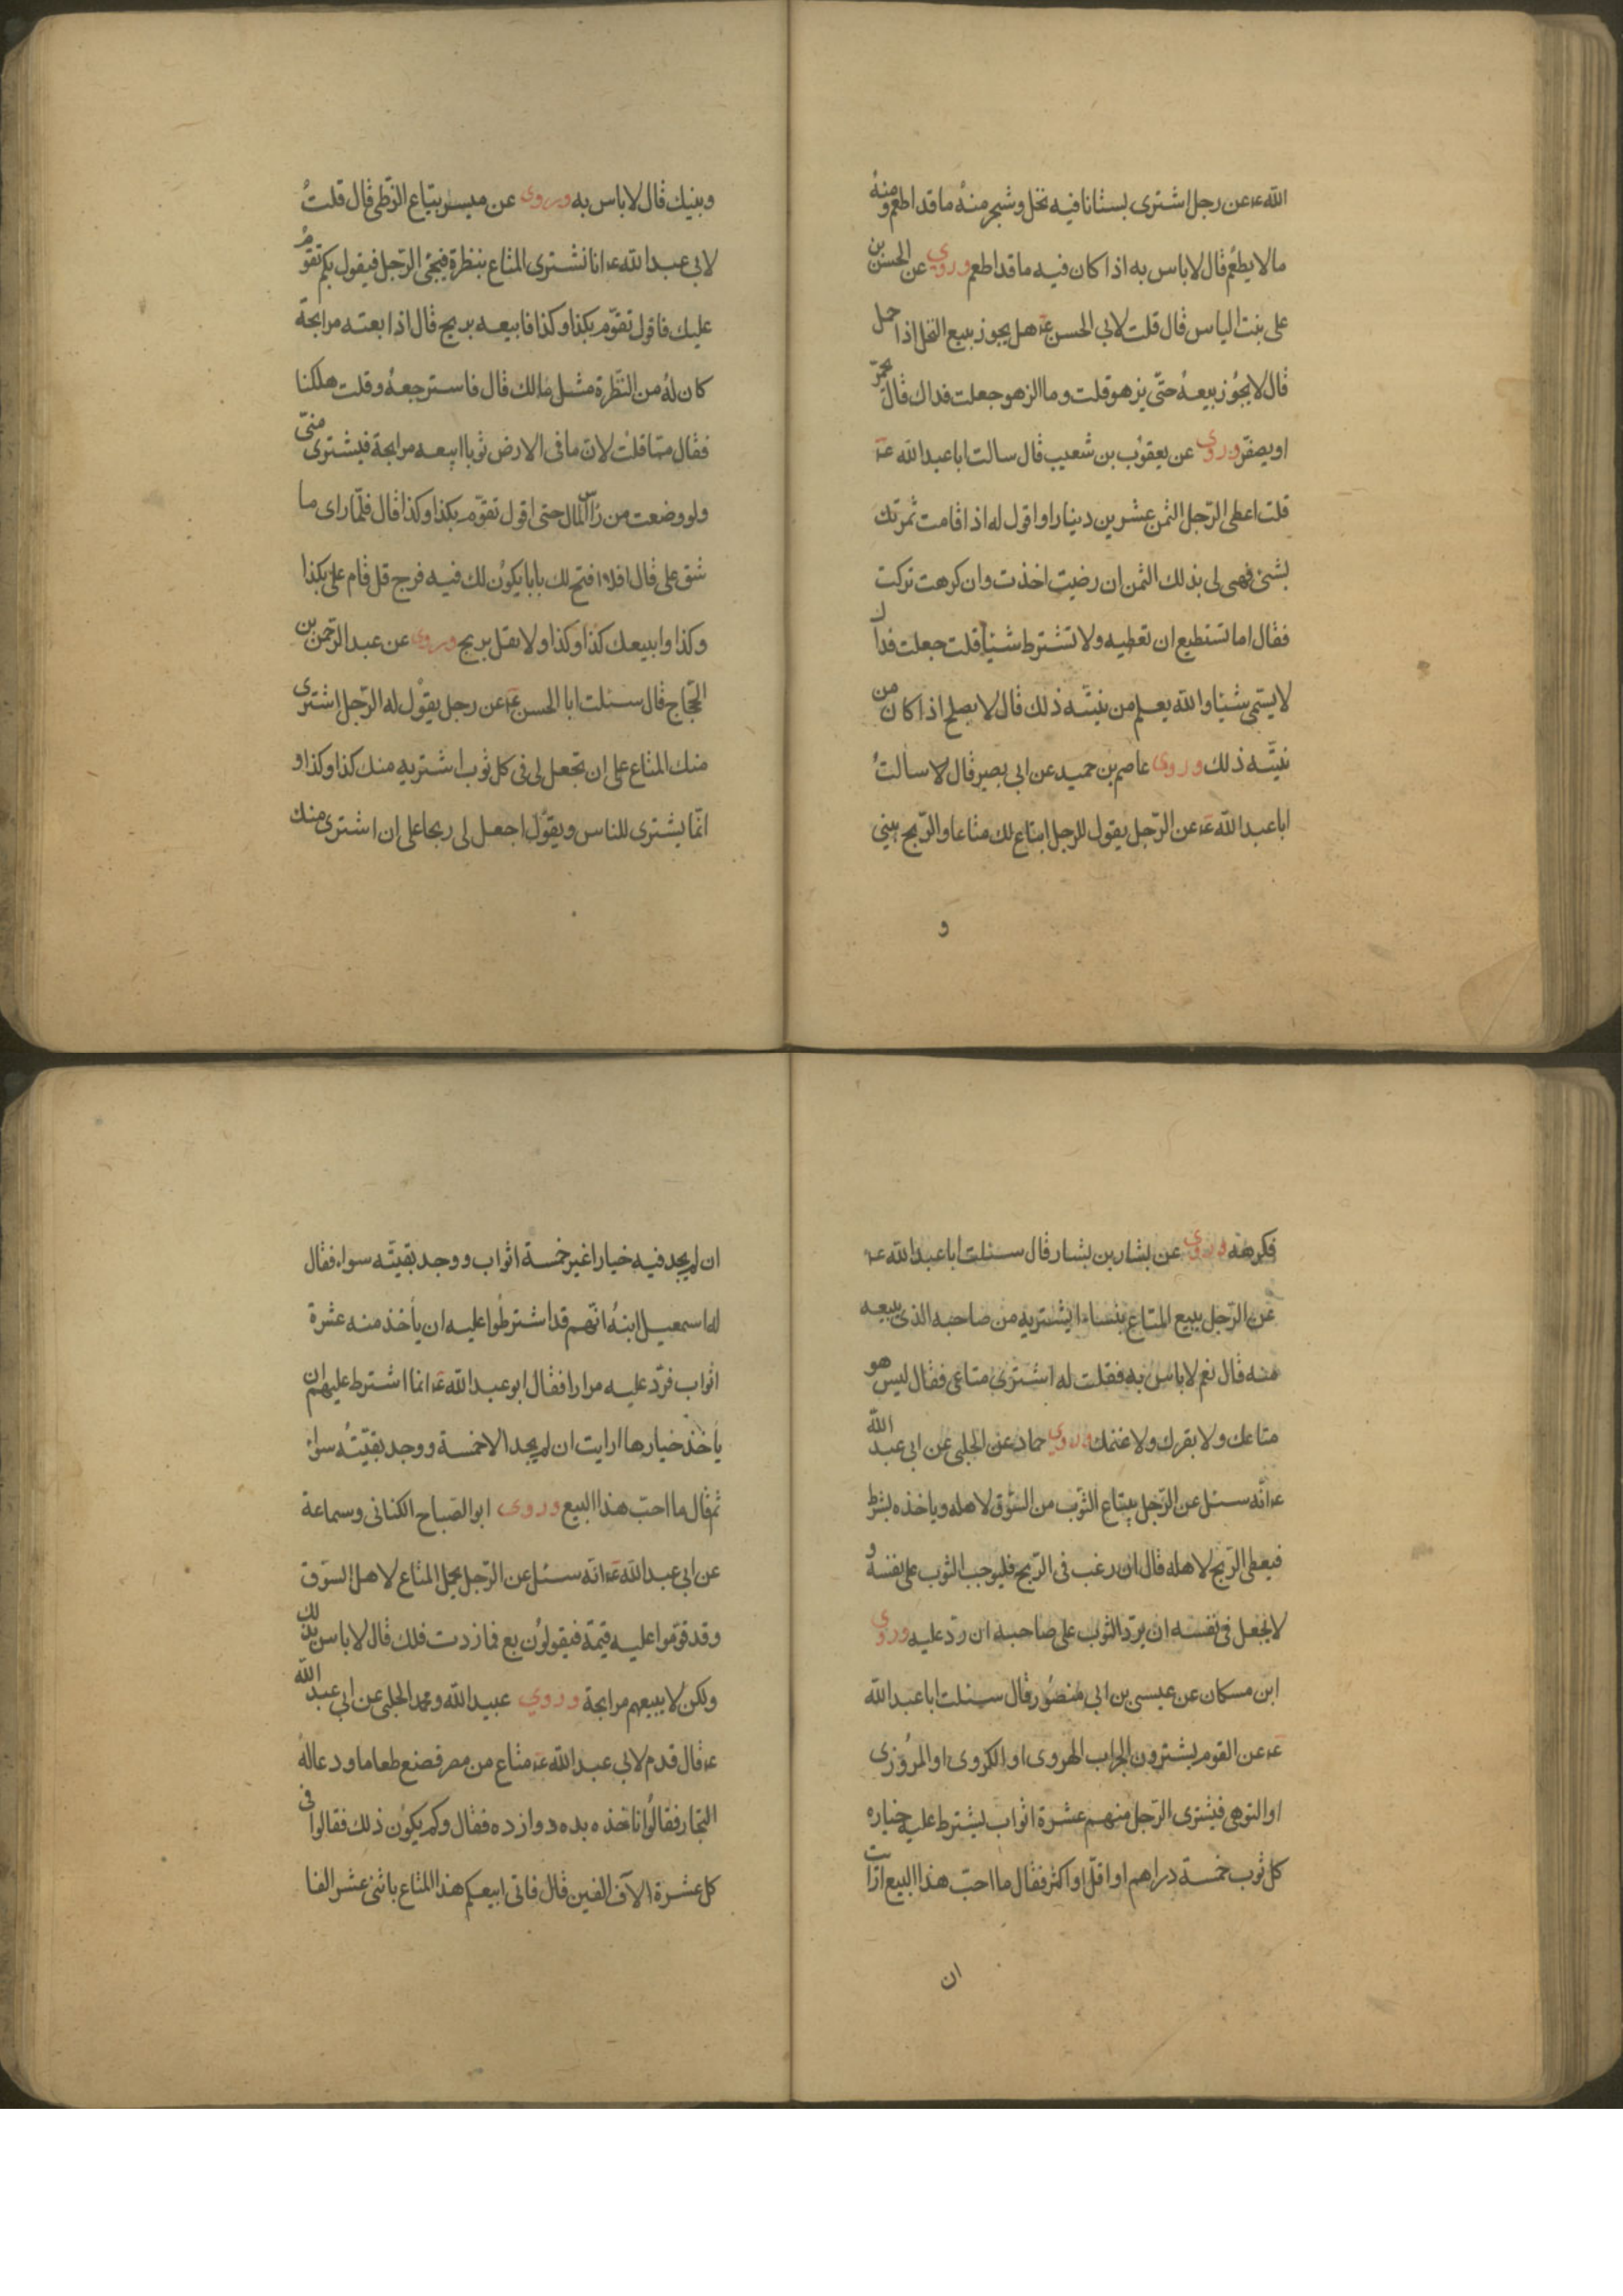 الله ع عن رجل اشترى بستانا فيه نخل وشجر منهُ ما قد اطعم ومنهُ
ما لا يطعُم قال لا باس به اذا كان فيه ما قد اطعم وروي عن الحسن بن
على بنت الياس قال قلت لابي الحسن عۤ هل يجوز بيع النخل اذا حمل
قال لا يجُوز بيعهُ حتّى يزهو قلت وما الزهو جعلت فداك قال يحمرّ
او يصفرّ وروي عن يعقوُب بن شعيب قال سالت ابا عبد الله عۤ
قلت اعطى الرّجل الثمن عشرين دينارا واقول له اذا قامت ثمرتك
بشئ فهى لى بذلك الثمن ان رضيت اخذت وان كرهت تركت
فقال اما تستطيع ان تعطيه ولا تشترط شيئا قلت جعلت فداك
لا يسمّى شيئا والله يعلم من نيّته ذلك قال لا يصلح اذا كان من
نيّته ذلك وروى عاصم بن حميد عن ابى بصير قال لا سالتُ
ابا عبد الله عۤ عن الرّجل يقول للرجل ابتاع لك متاعا والرّبح بيني
و
وبينك قال لا باس به وروى عن ميسر بيّاع الزّطى قال قلتُ
لابي عبد الله ع انا نشترى المتاع بنظرة فيجئ الرّجل فيقول بكم تقوّمُ
عليك فاقول تقوّم بكذا وكذا فابيعه بربح قال اذا بعته مرابحة
كان لهُ من النّظرة مثل مالك قال فاسترجعهُ وقلت هلكنا
فقال ممّا قلت لان ما فى الارض ثوبا ابيعه مرابحة فيشترى منّى
ولو وضعت من راس المال حتى اقول تقوّم بكذا وكذا قال فلمّا راى ما
شق على قال افلا افتح لك بابا يكوُن لك فيه فرج قل قام على بكذا
وكذا وابيعك كذا وكذا ولا يقل بربح وروى عن عبد الرّحمن بن
الحجّاج قال سئلت ابا الحسن عۤ عن رجل يقوُل له الرّجل اشترى
منك المتاع على ان تجعل لى فى كل ثوب اشتريه منك كذا وكذا و
انّما يشترى للناس ويقوُل اجعل لى ربحا على ان اشترى منك
فكرهه وروى عن بشار بن بشار قال سئلت ابا عبد الله عۤ
عن الرّجل يبيع المتاع بنساء ايشتريه من صاحبه الذى يبيعه
منه قال نعم لا باس به فقلت له اشترى متاعى فقال ليس هو
متاعك ولا بقرك ولا غنمك وروي حماد عن الحلبى عن ابى عبد الله
ع انّه سئل عن الرّجل يبتاع الثوب من السّوق لاهله وياخذه بشرط
فيعطى الرّبح لاهله قال ان رغب فى الرّبح فليوجب الثوب على نفسه و
لا يجعل فى نفسه ان يردّ الثوب على صاحبه ان ردّ عليه وروى
ابن مسكان عن عيسى بن ابى منصُور قال سئلت ابا عبد الله
عۤ عن القوم يشترون الجراب الهروى او الكروى او المرُوزى
او القوهى فيشترى الرّجل منهم عشرة اثواب يشترط عليه خياره
كل ثوب خمسة دراهم او اقلّ او اكثر فقال ما احبّ هذا البيع ارايت
ان
ان لم يجد فيه خيارا غير خمسة اثواب ووجد بقيّته سواء فقال
له اسمعيل ابنهُ انّهم قد اشترطُوا عليه ان يأخذ منه عشرة
اثواب فردّ عليه مرارا فقال ابو عبد الله عۤ انما اشترط عليهم ان
يأخذ خيارها ارايت ان لم يجد الا خمسة ووجد بقيّتهُ سواء
ثم قال ما احبّ هذا البيع وروى ابو الصّباح الكنانى وسماعة
عن ابي عبد الله عۤ انّه سئل عن الرّجل يحمل المتاع لاهل السّوق
وقد قوّموا عليه قيمة فيقولوُن بع فما زدت فلك قال لا باس بذلك
ولكن لا يبيعهم مرابحة وروي عبيد الله ومحمد الحلبى عن ابي عبد الله
ع قال قدم لابي عبد الله عۤ متاع من مصر فصنع طعاما ودعا لهُ
التجار فقالوُا ناخذه بده دوازده فقال وكم يكوُن ذلك فقالوا فى
كل عشرة الآف الفين قال فانى ابيعكم هذا المتاع باثنى عشر الفا